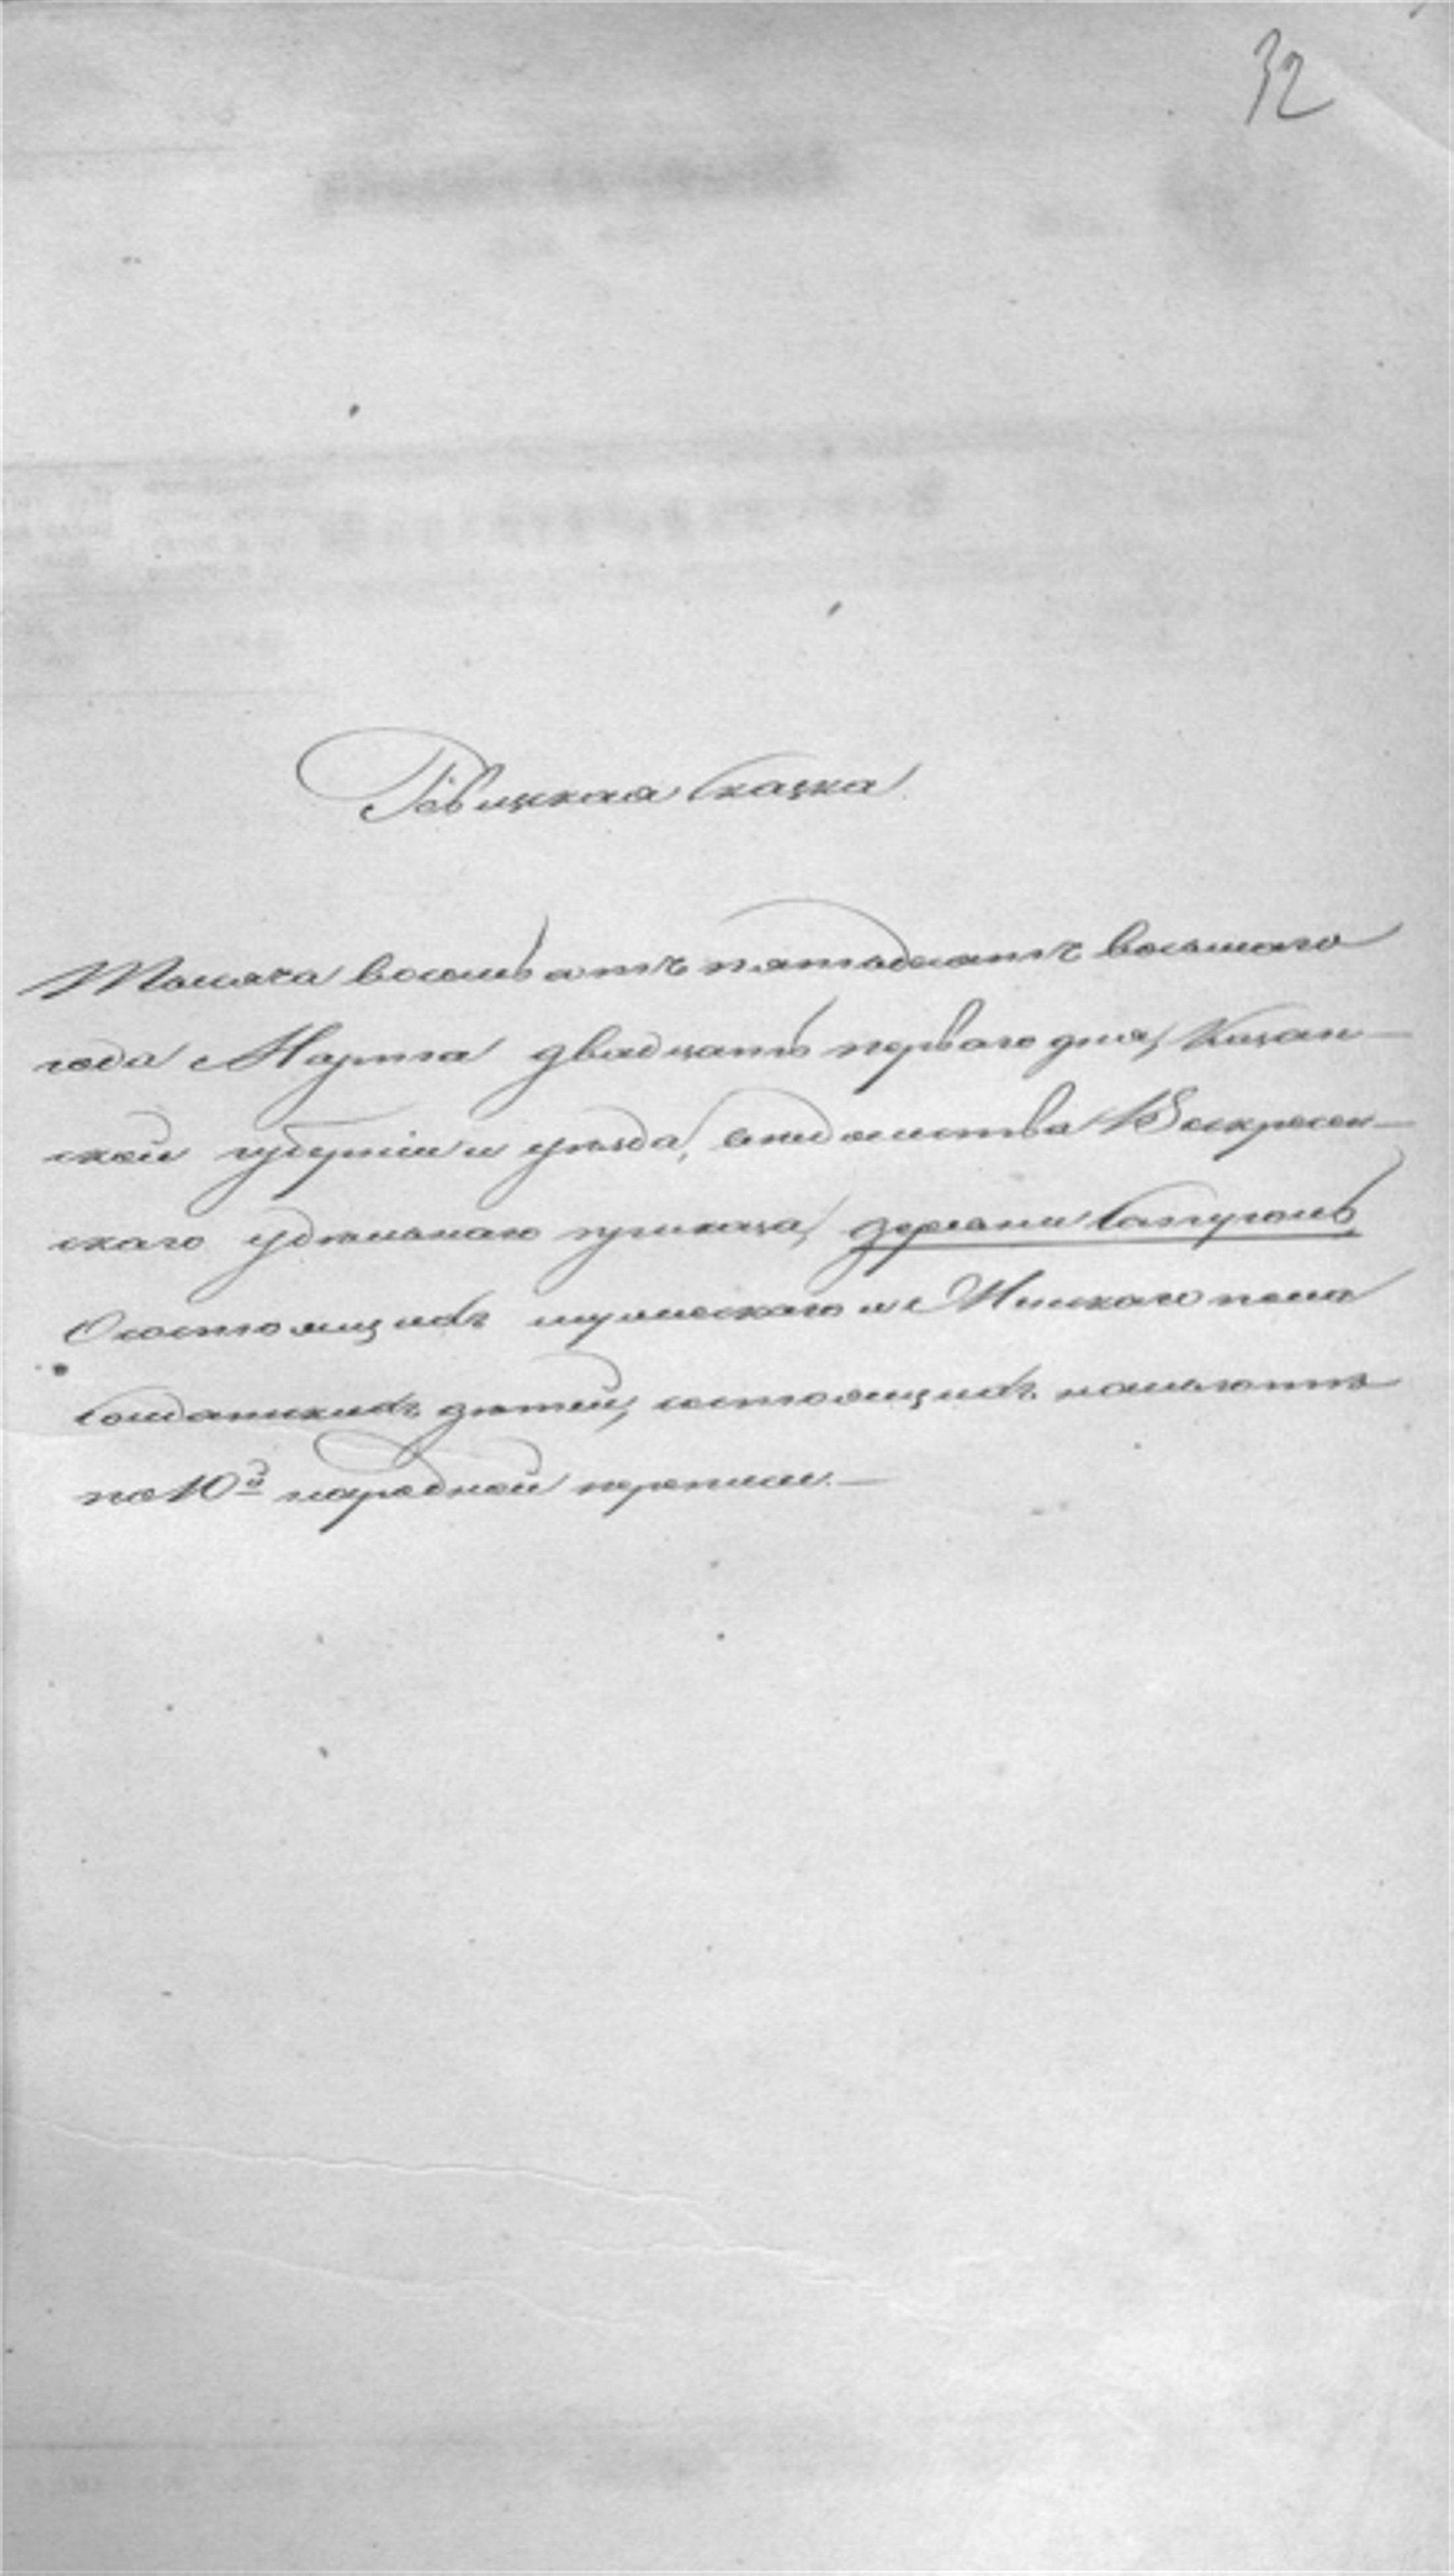 32
Ревизская Сказка
Тысяча восемь сотъ пятьдесятъ восьмаго
года Марта двадцать перваго дня, Казан-
ской губерніи и уѣзда, вѣдомства Воскресен-
скаго удѣльнаго приказа, деревни
О состоящихъ мужескаго и Женскаго пола
солдатскихъ дѣтей, состоящихъ на льготѣ
по 10й народной переписи.—